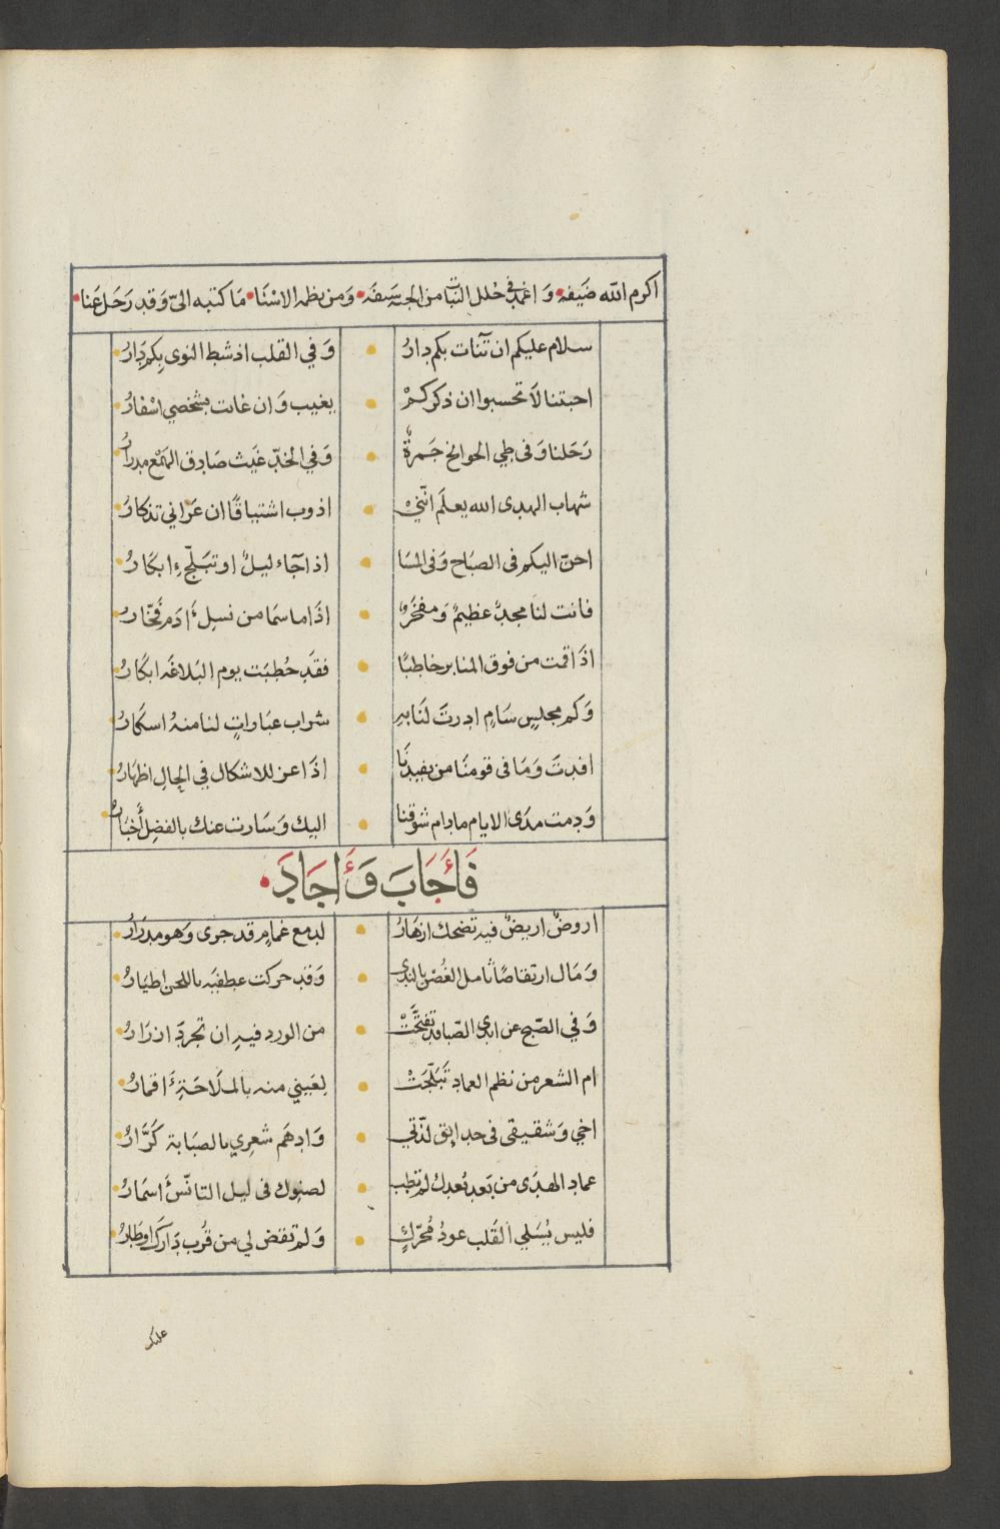 اكرم الله ضَيفه • وَ اغمد في حلل النبات من الجنة سَيفَه • وَمن نظمه الاسْنَا • مَا كتبه الىّ وَقد رَحَل عَنا •
سلام عليكم ان تنآت بكم دارُ • وَفي القلب اذ شط النوى بِكم دَارُ
احبتنا لاَ تحسبوا ان ذكركمْ • يغيب وَان غابت بشخصي اسْفارُ
رَحَلنا وَفى طي الجوانح جَمرةٌ • وَفي الخدّ غَيث صَادق الهَمْع مدرارُ
شهاب الهدى الله يعلَم انّنيْ • اذوب اشتياقًا ان عَرَاني تذكارُ
احنّ اليكم فى الصبَاح وَفى المسَا • اذا جَآء ليلٌ او تبَلّج ابكَارُ
فانت لنا مجدٌ عظيمٌ وَمفخَرٌ • اذَا ما سمَا من نسل أَدَم فَخّارُ
اذَا قمت من فوق المنابر خاطبًا • فقَد خُطبَت يوم البَلاغَه ابكَارُ
وَكم مجلسٍ سَامٍ ادرتَ لنَا بهِ • شراب عبَاراتٍ لنا منهُ اسكَارُ
افدتَ وَمَا فى قومنَا من يفيدنَا • اذَا عز للاشكال في الحالِ اظهَارُ
وَدمت مدَى الايام مادام شوقنا • اليك وَسَارت عنك بالفضلِ أَخبَارُ
فَأَجَابَ وَأَجَادَ •
اروضٌ اريضٌ فيه تضحك ازهَارُ • لدمع غمامٍ قد جرى وَهو مدرَارُ
وَمَال ارتقاصًا ثامل الغُصْن بالندى • وَقد حركت عطفيَه باللحن اطيَارُ
وَفي الصّبح عن ايدى الصّبا قد تفتّحَتْ • من الورد فيهِ ان تجردَ ازرَارُ
ام الشعر من نظم العماد تَبَلّجَتْ • لعَيني منه بالملَاحَةِ أَقمارُ
اخي وَشقيقى فى حدايق لذّتي • وَادهَم شعرِي بالصبَابة كَرّارُ
عماد الهدَى من بَعد بُعدك لم تطب • لصنوك فى ليل التانّس أَسمَارُ
فليس يُسَلي القَلب عودُ مُحَرّكٍ • وَلم تقض لي من قُرب دَارك اوطارُ